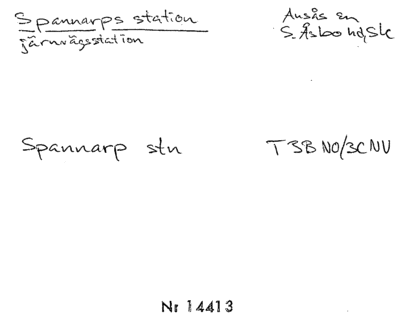 Spannarps station
järnvägsstation
Ausås sn
S. Åsbo hd, Sk
Spannarp stn
T 3B NO/3C NV
Nr 14413